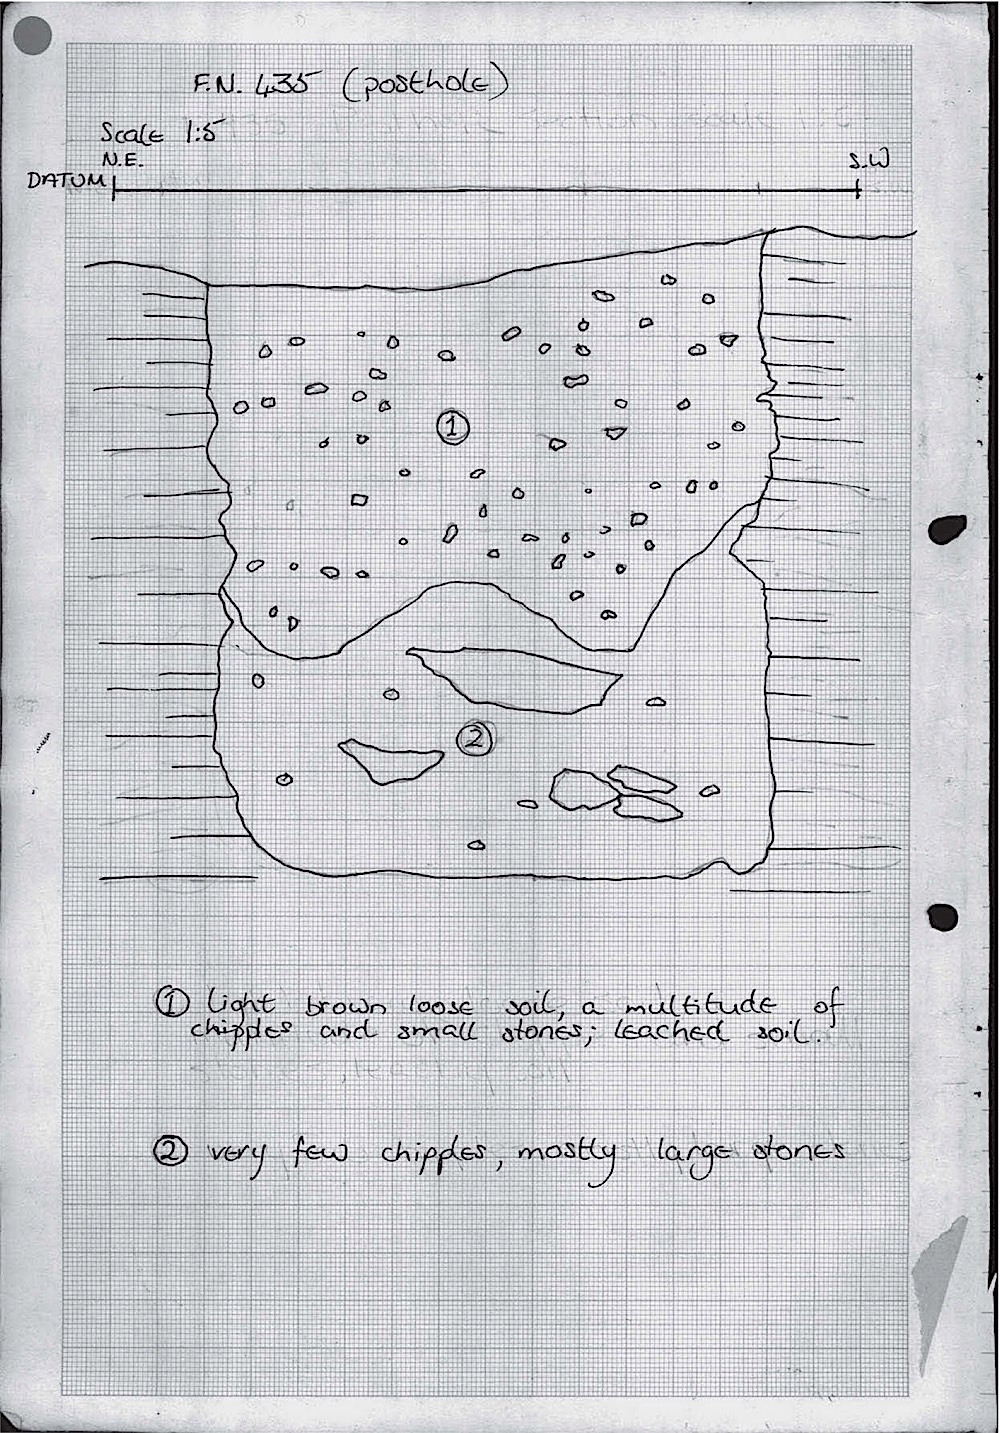 F.N. 435 (posthole)
Scale 1:5
N.E.
S.W
DATUM
1
2
① light brown loose soil, a multitude of
chipples and small stones; leached soil.
② very few chipples, mostly large stones